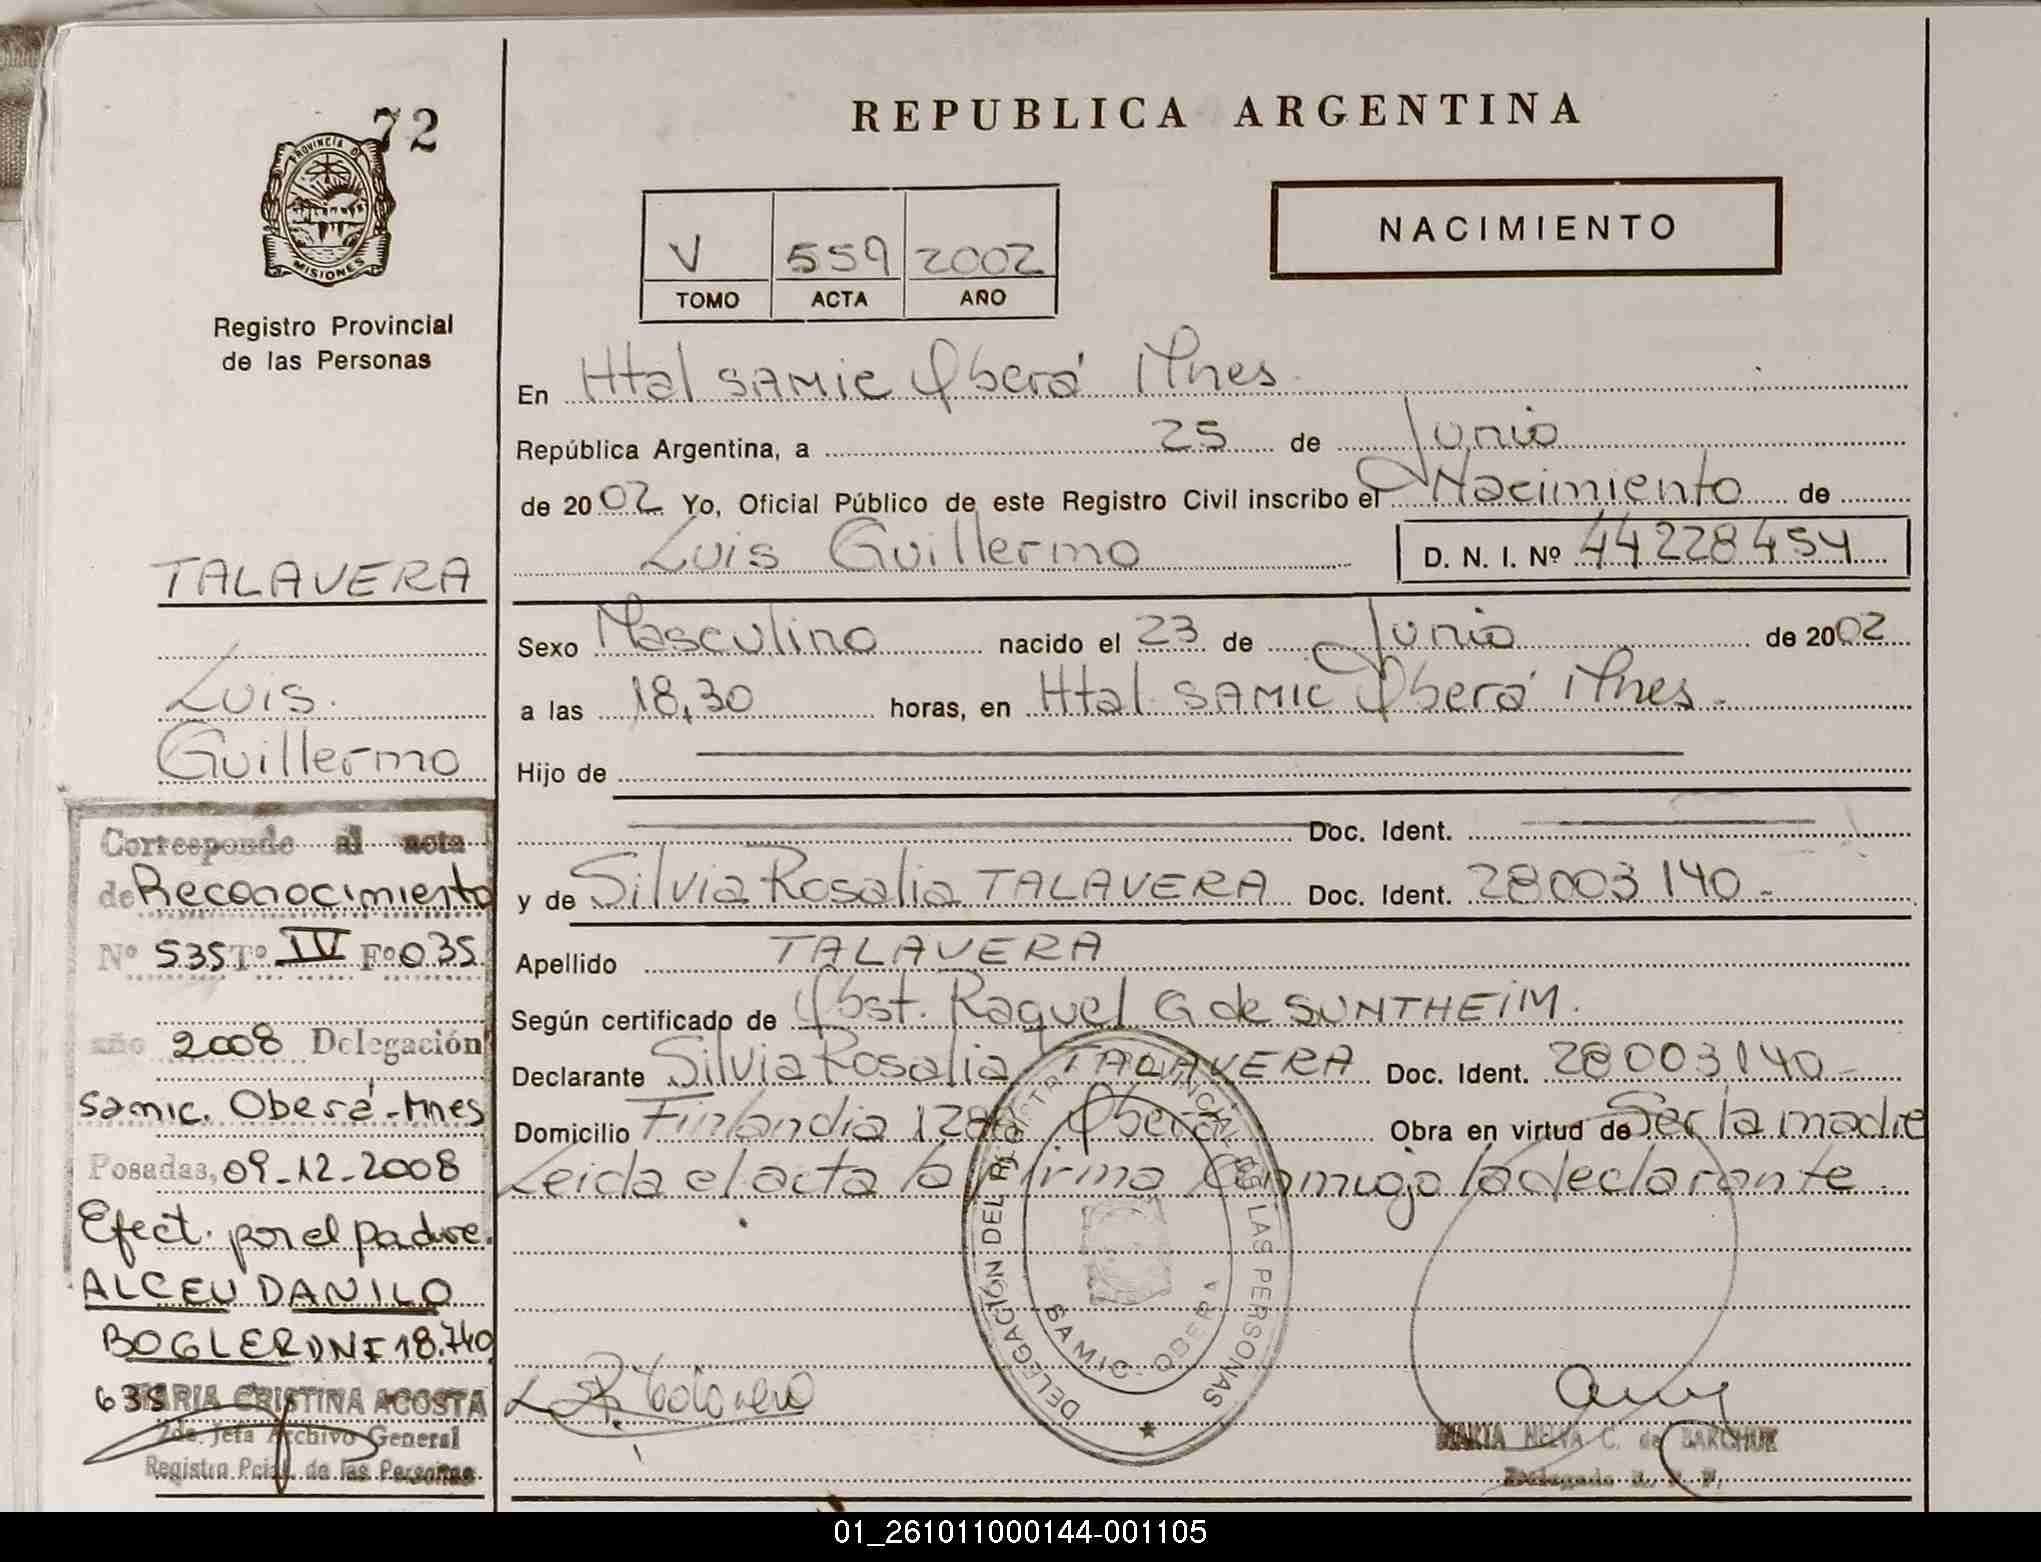 72
PROVINCIA DE
MISIONES
Registro Provincial
de las Personas
TALAVERA
Luis
Guillermo
Corresponde al acta
de Reconocimiento
Nº 535 Tº IV Fº 035
año 2008 Delegación
Samic. Oberá-Mnes
Posadas, 09-12-2008
Efect. por el padre.
ALCEU DANILO
BOGLER DNI 18.740
635
MARIA CRISTINA ACOSTA
2da. Jefa Archivo General
Registro Pcial. de las Personas
REPUBLICA ARGENTINA
NACIMIENTO
V 559 2002
TOMO ACTA AÑO
En Htal SAMIC Oberá Mnes
República Argentina, a 25 de Junio
de 2002 Yo, Oficial Público de este Registro Civil inscribo el Nacimiento de
Luis Guillermo D. N. I. Nº 44228454
Sexo Masculino nacido el 23 de Junio de 2002
a las 18,30 horas, en Htal. SAMIC Oberá Mnes -
Hijo de
Doc. Ident.
y de Silvia Rosalia TALAVERA Doc. Ident. 28003140-
Apellido TALAVERA
Según certificado de Obst. Raquel G de SUNTHEIM.
Declarante Silvia Rosalia TALAVERA Doc. Ident. 28003140-
Domicilio Finlandia Oberá Obra en virtud de Ser la madre
Leida el acta la firma Conmigo la declarante.
DELEGACIÓN DEL REGISTRO PROVINCIAL DE LAS PERSONAS
SAMIC - OBERA
MARIA C. de
01_261011000144-001105